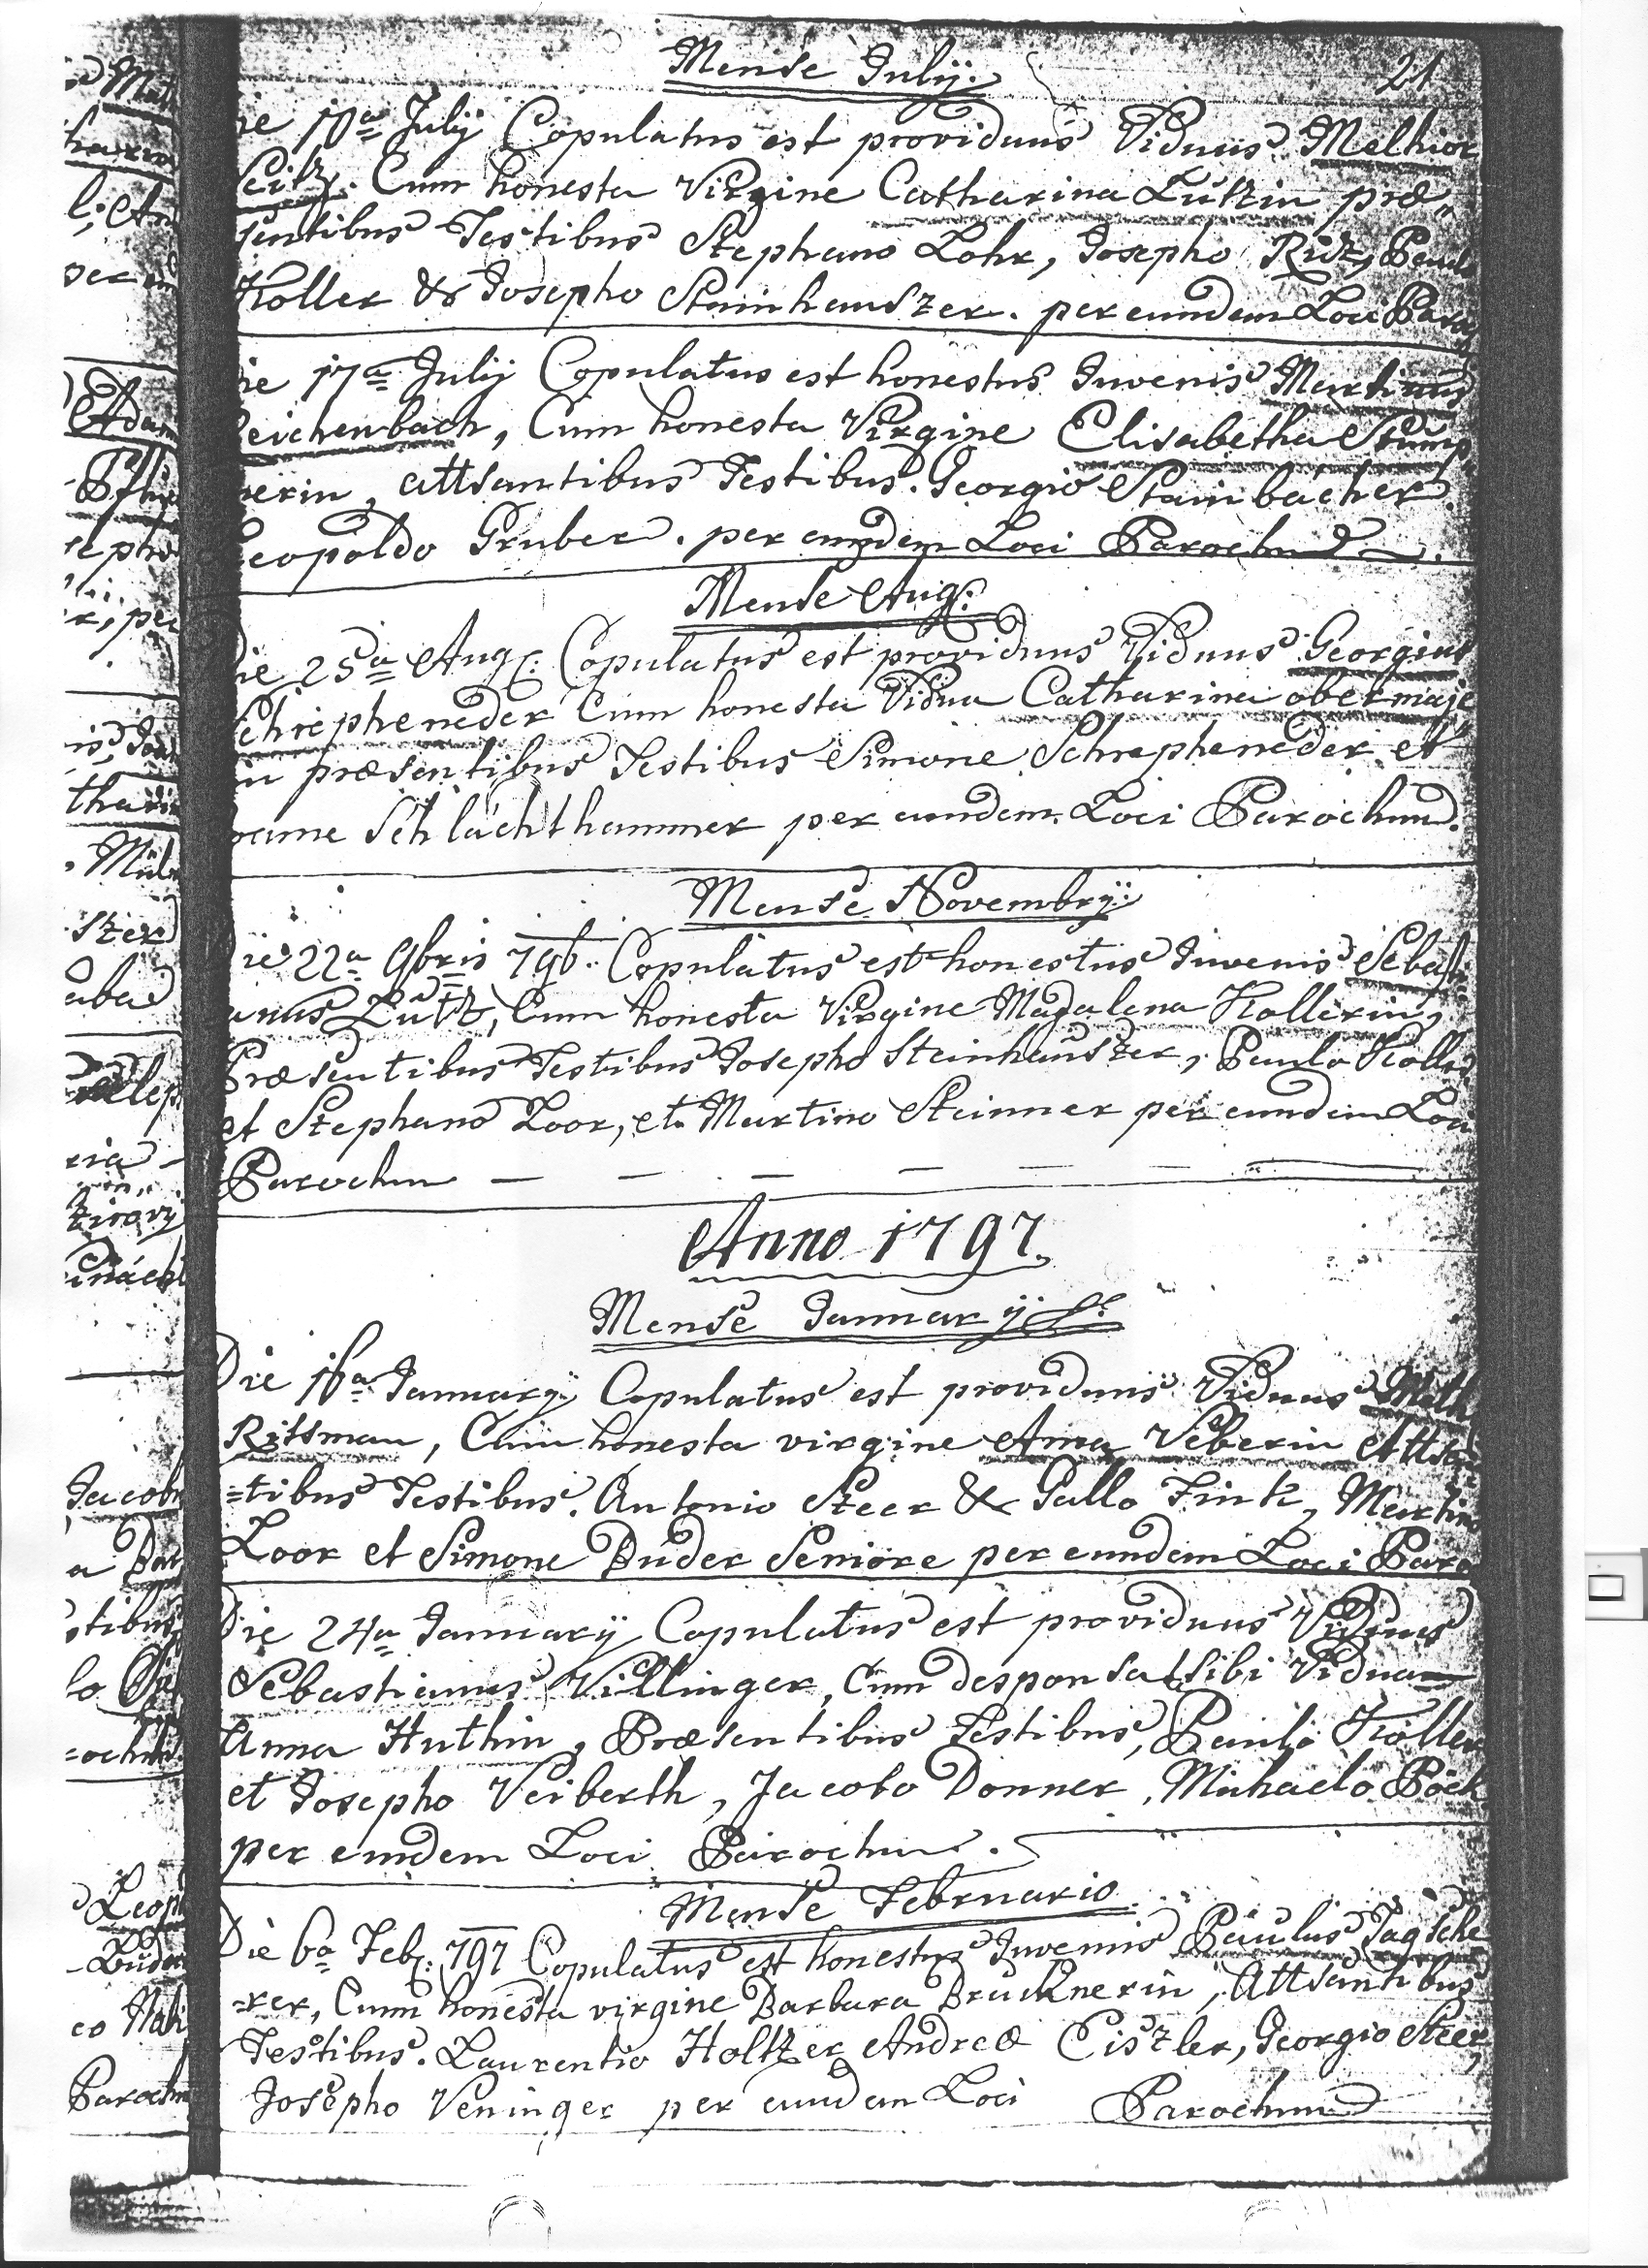 Mense Julij:
21
ie 10a July Copulatus est providuus Viduus Melhior
Seitz. Cum honesta Virgine Catharina Lutzin præ„
sentibus Testibus Stephano Lohr, Josepho Ritz, Paulo
Koller & Josepho Stainhauszer. per eumdem Loci Paroc
ie 17a July Copulatus est honestus Juvenis Martinus
Reichenbach, Cum honesta Virgine Elisabetha Stump„
nerin, attsantibus Testibus. Georgio Stainbacher
Leopoldo Gruber. per eumdem Loci Parochum.
Mense Aug:
ie 25a Aug: Copulatus est providuus Viduus Georgius
Schrepheneder Cum honesta Vidua Catharina obermaje
in præsentibus Testibus Simone Schrepheneder et
oanne Schlächthammer per eumdem Loci Parochum.
Mense Novembrij:
Die 22a 9bris 796. Copulatus est honestus Juvenis Sebasti
anus Lutz, Cum honesta Virgine Magdalena Kollerin,
Præsentibus Testibus Josepho Steinhauszer, Paulo Koller
et Stephano Loor, et Martino Steinner per eumdem Loci
Parochum — — — — —
Anno 1797.
Mense Januarij
Die 16a January Copulatus est providuus Viduus Math
Rittsman, Cum honesta virgine Anna Veberin Attsan
=tibus Testibus. Antonio Steer & Gallo Fink, Martino
Loor et Simone Buder Seniore per eumdem Loci Paro
Die 24a January Copulatus est providuus Viduus
Sebastianus Villinger, Cum desponsat sibi Vidua
Anna Huthin, Præsentibus Testibus, Paulo Koller
et Josepho Veiberth, Jacobo Donner, Michaelo Böck
per eumdem Loci Parochum.
Mense Februario
Die 6a Feb: 797 Copulatus est honestus Juvenis Paulus Tagsche
=rer, Cum honesta virgine Barbara Brucknerin, Attsantibus
Testibus. Laurentio Holtzer Andreæ Ciszler, Georgio Steer,
Josepho Veninger per eumdem Loci Parochum